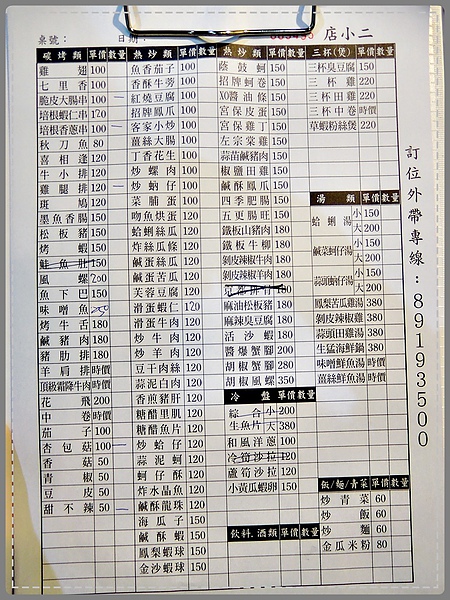 店小二
桌號：
日期：
碳烤類 單價 數量
雞翅 100
七里香 100
脆皮大腸串 100
培根蝦仁串 120
培根香蔥串 100
秋刀魚 80
喜相逢 120
牛小排 120
雞腿排 120
斑鳩 120
墨魚香腸 150
松板豬 150
烤蝦 150
鮭魚肚 150
風螺 200
魚下巴 150
味噌魚 250
烤牛舌 180
鹹豬肉 180
豬肋排 180
羊肩排 時價
頂級霜降牛肉 時價
花飛 200
中卷 時價
茄子 100
杏包菇 100
香菇 50
青椒 50
豆皮 50
甜不辣 50
熱炒類 單價 數量
魚香茄子 100
香酥牛蒡 100
紅燒豆腐 100
招牌鳳爪 100
客家小炒 100
薑絲大腸 100
丁香花生 100
炒螺肉 100
炒蚋仔 100
菜脯蛋 100
吻魚烘蛋 120
蛤蜊絲瓜 120
炸絲瓜條 120
鹹蛋絲瓜 120
鹹蛋苦瓜 120
芙蓉豆腐 120
滑蛋蝦仁 120
滑蛋牛肉 120
炒牛肉 120
炒羊肉 120
豆干肉絲 120
蒜泥白肉 120
香煎豬肝 120
糖醋里肌 120
糖醋魚片 120
炒蛤仔 120
蒜泥蚵 120
蚵仔酥 120
炸水晶魚 120
鹹酥龍珠 120
海瓜子 150
鹹酥蝦 150
鳳梨蝦球 150
金沙蝦球 150
熱炒類 單價 數量
蔭鼓蚵 150
招牌蚵卷 150
XO醬油條 150
宮保皮蛋 150
宮保雞丁 150
左宗菜雞 150
蒜苗鹹豬肉 150
椒鹽田雞 150
鹹酥鳳爪 150
四季肥腸 150
五更腸旺 150
鐵板山豬肉 180
鐵板牛柳 180
剝皮辣椒牛肉 180
剝皮辣椒羊肉 180
180
麻油松板豬 180
麻辣臭豆腐 180
活沙蝦 180
醬爆蟹腳 200
胡椒蟹腳 280
胡椒風螺 350
冷盤 單價 數量
綜合 小 200
生魚片 大 380
和風洋蔥 100
冷筍沙拉 120
蘆筍沙拉 120
小黃瓜蝦卵 150
飲料.酒類 單價 數量
三杯(煲) 單價 數量
三杯臭豆腐 150
三杯雞 220
三杯田雞 220
三杯中卷 時價
草蝦粉絲煲 220
湯類 單價 數量
蛤蜊湯 小 150
大 200
鹹菜蚵仔湯 小 150
大 200
蒜頭蜆仔湯 小 150
大 200
鳳梨苦瓜雞湯 380
剝皮辣椒雞 380
蒜頭田雞湯 380
生猛海鮮鍋 380
味噌鮮魚湯 時價
薑絲鮮魚湯 時價
飯/麵/青菜 單價 數量
炒青菜 60
炒飯 60
炒麵 60
金瓜米粉 80
訂位外帶專線：89193500